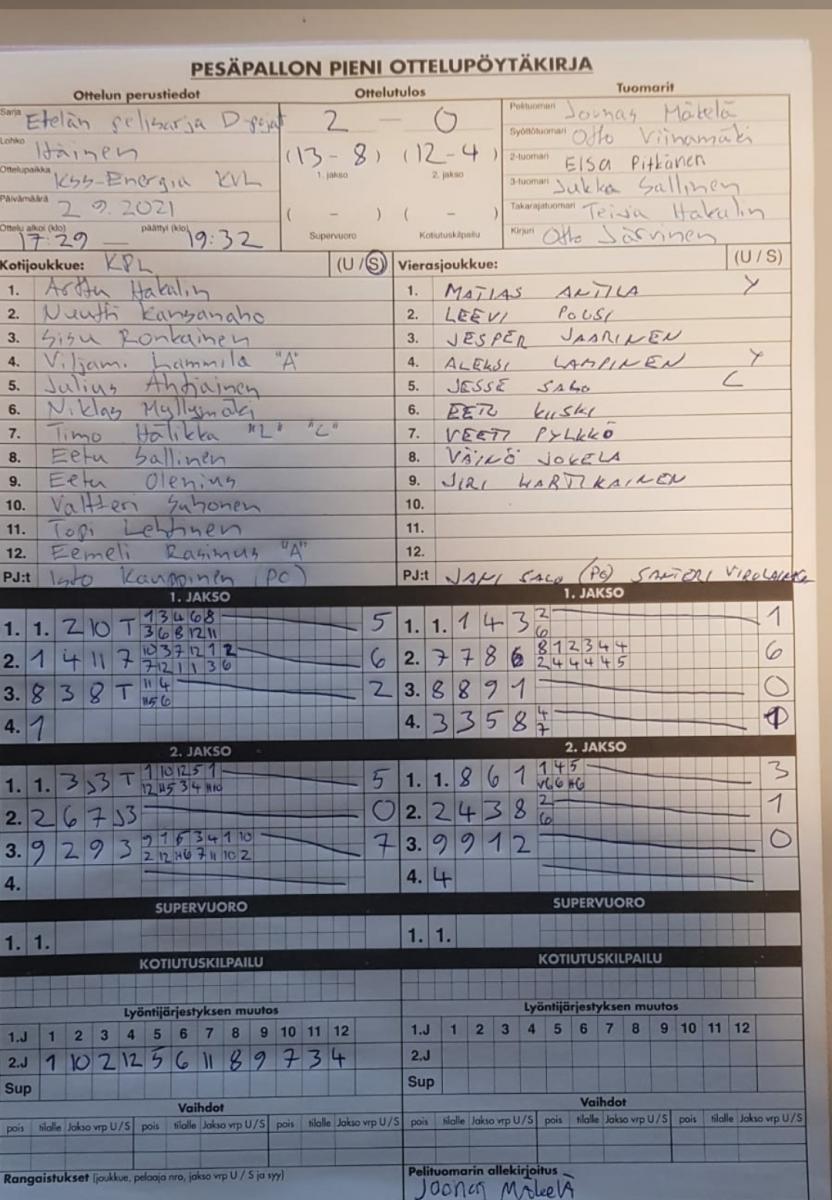 PESÄPALLON PIENI OTTELUPÖYTÄKIRJA
Ottelun perustiedot
Sarja Etelän pelisarja D-pojat
Lohko Itäinen
Ottelupaikka KSS-Energia KVL
Päivämäärä 2 9.2021
Ottelu alkoi (klo) 17:29 — päättyi (klo) 19:32
Ottelutulos
2 — 0
(13-8) (12-4)
1. jakso 2. jakso
( - ) ( - )
Supervuoro Kotiutuskilpailu
Tuomarit
Pelituomari Joonas Mäkelä
Syöttötuomari Otto Viinamäki
2-tuomari Elsa Pitkänen
3-tuomari Jukka Sallinen
Takarajatuomari Teija Hakalin
Kirjuri Otto Järvinen
Kotijoukkue: KPL (U/S)
1. Arttu Hakalin
2. Nuutti Kansanaho
3. Sisu Ronkainen
4. Viljami Lammila "A"
5. Julius Ahtiainen
6. Niklas Myllymäki
7. Timo Hälikkä "L" "C"
8. Eetu Sallinen
9. Eetu Olenius
10. Valtteri Suhonen
11. Topi Lehtinen
12. Eemeli Rasimus "A"
PJ:t Kauppinen (PC)
Vierasjoukkue: (U/S)
1. MATIAS ANTILA Y
2. LEEVI POUSI
3. JESPER JAARINEN
4. ALEKSI LAMPINEN Y
5. JESSE SALO C
6. EERO KUSKI
7. VEETI PYLKKÖ
8. VÄINÖ JOKELA
9. JIRI HARTIKAINEN
10.
11.
12.
PJ:t JANI SALO (PC) SANTERI VIROLAINEN
1. JAKSO
1. 1. 2 10 T 1 3 4 6 8 5
3 6 8 12 11
2. 1 4 11 7 10 3 7 12 1 2 6
7 12 1 1 3 6
3. 8 3 8 T 11 4 2
4. 1
1. JAKSO
1. 1. 1 4 3 2 1
6
2. 7 7 8 6 8 1 2 3 4 4 6
2 4 4 4 4 5
3. 8 8 9 1 0
4. 3 3 5 8 4 1
7
2. JAKSO
1. 1. 3 J3 T 1 10 12 5 1 5
2. 2 6 7 J3 0
3. 9 2 9 3 9 1 6 3 4 1 10 7
2 12 H6 7 11 10 2
4.
2. JAKSO
1. 1. 8 6 1 1 4 5 3
2. 2 4 3 8 2 1
6
3. 9 9 1 2 0
4. 4
SUPERVUORO
1. 1.
SUPERVUORO
1. 1.
KOTIUTUSKILPAILU
KOTIUTUSKILPAILU
Lyöntijärjestyksen muutos
1.J 1 2 3 4 5 6 7 8 9 10 11 12
2.J 1 10 2 12 5 6 11 8 9 7 3 4
Sup
Lyöntijärjestyksen muutos
1.J 1 2 3 4 5 6 7 8 9 10 11 12
2.J
Sup
Vaihdot
pois tilalle Jakso vrp U/S pois tilalle Jakso vrp U/S pois tilalle Jakso vrp U/S
Vaihdot
pois tilalle Jakso vrp U/S pois tilalle Jakso vrp U/S pois tilalle Jakso vrp U/S
Rangaistukset (joukkue, pelaaja nro, jakso vrp U / S ja syy)
Pelituomarin allekirjoitus
Joonas Mäkelä